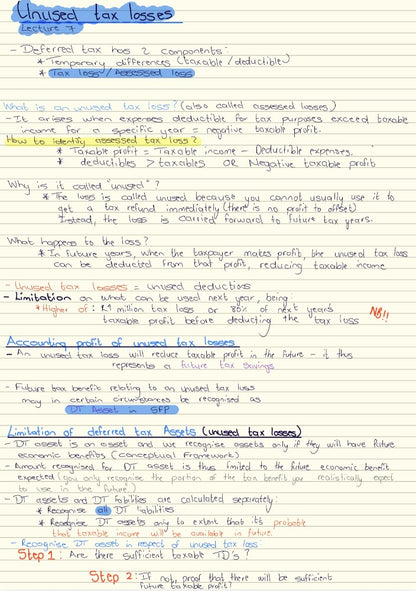 Unused tax losses
Lecture 7
- Deferred tax has 2 components:
* Temporary differences (taxable / deductible)
* Tax loss / Assessed loss
What is an unused tax loss? (also called assessed losses)
- It arises when expenses deductible for tax purposes exceed taxable
income for a specific year = negative taxable profit.
How to identify assessed tax loss?
* Taxable profit = Taxable income - Deductible expenses.
* deductibles > taxables OR Negative taxable profit
Why is it called "unused"?
* The loss is called unused because you cannot usually use it to
get a tax refund immediately (there is no profit to offset)
Instead, the loss is carried forward to future tax years.
What happens to the loss?
* In future years, when the taxpayer makes profit, the unused tax loss
can be deducted from that profit, reducing taxable income
- Unused tax losses = unused deductions
- Limitation on what can be used next year, being:
* Higher of: R1 million tax loss or 80% of next year's
taxable profit before deducting the tax loss NB!!
Accounting profit of unused tax losses
- An unused tax loss will reduce taxable profit in the future - it thus
represents a future tax savings
- Future tax benefit relating to an unused tax loss
may in certain circumstances be recognised as
DT Asset in SFP
Limitation of deferred tax Assets (unused tax losses)
- DT asset is an asset and we recognise assets only if they will have future
economic benefits (Conceptual Framework)
- Amount recognised for DT asset is thus limited to the future economic benefit
expected (you only recognise the portion of the tax benefit you realistically expect
to use in the future)
- DT assets and DT liabilities are calculated separately:
* Recognise all DT liabilities
* Recognise DT assets only to extent that it's probable
that taxable income will be available in future.
- Recognise DT asset in respect of unused tax loss:
Step 1: Are there sufficient taxable TD's?
Step 2: If not, proof that there will be sufficient
future taxable profit?